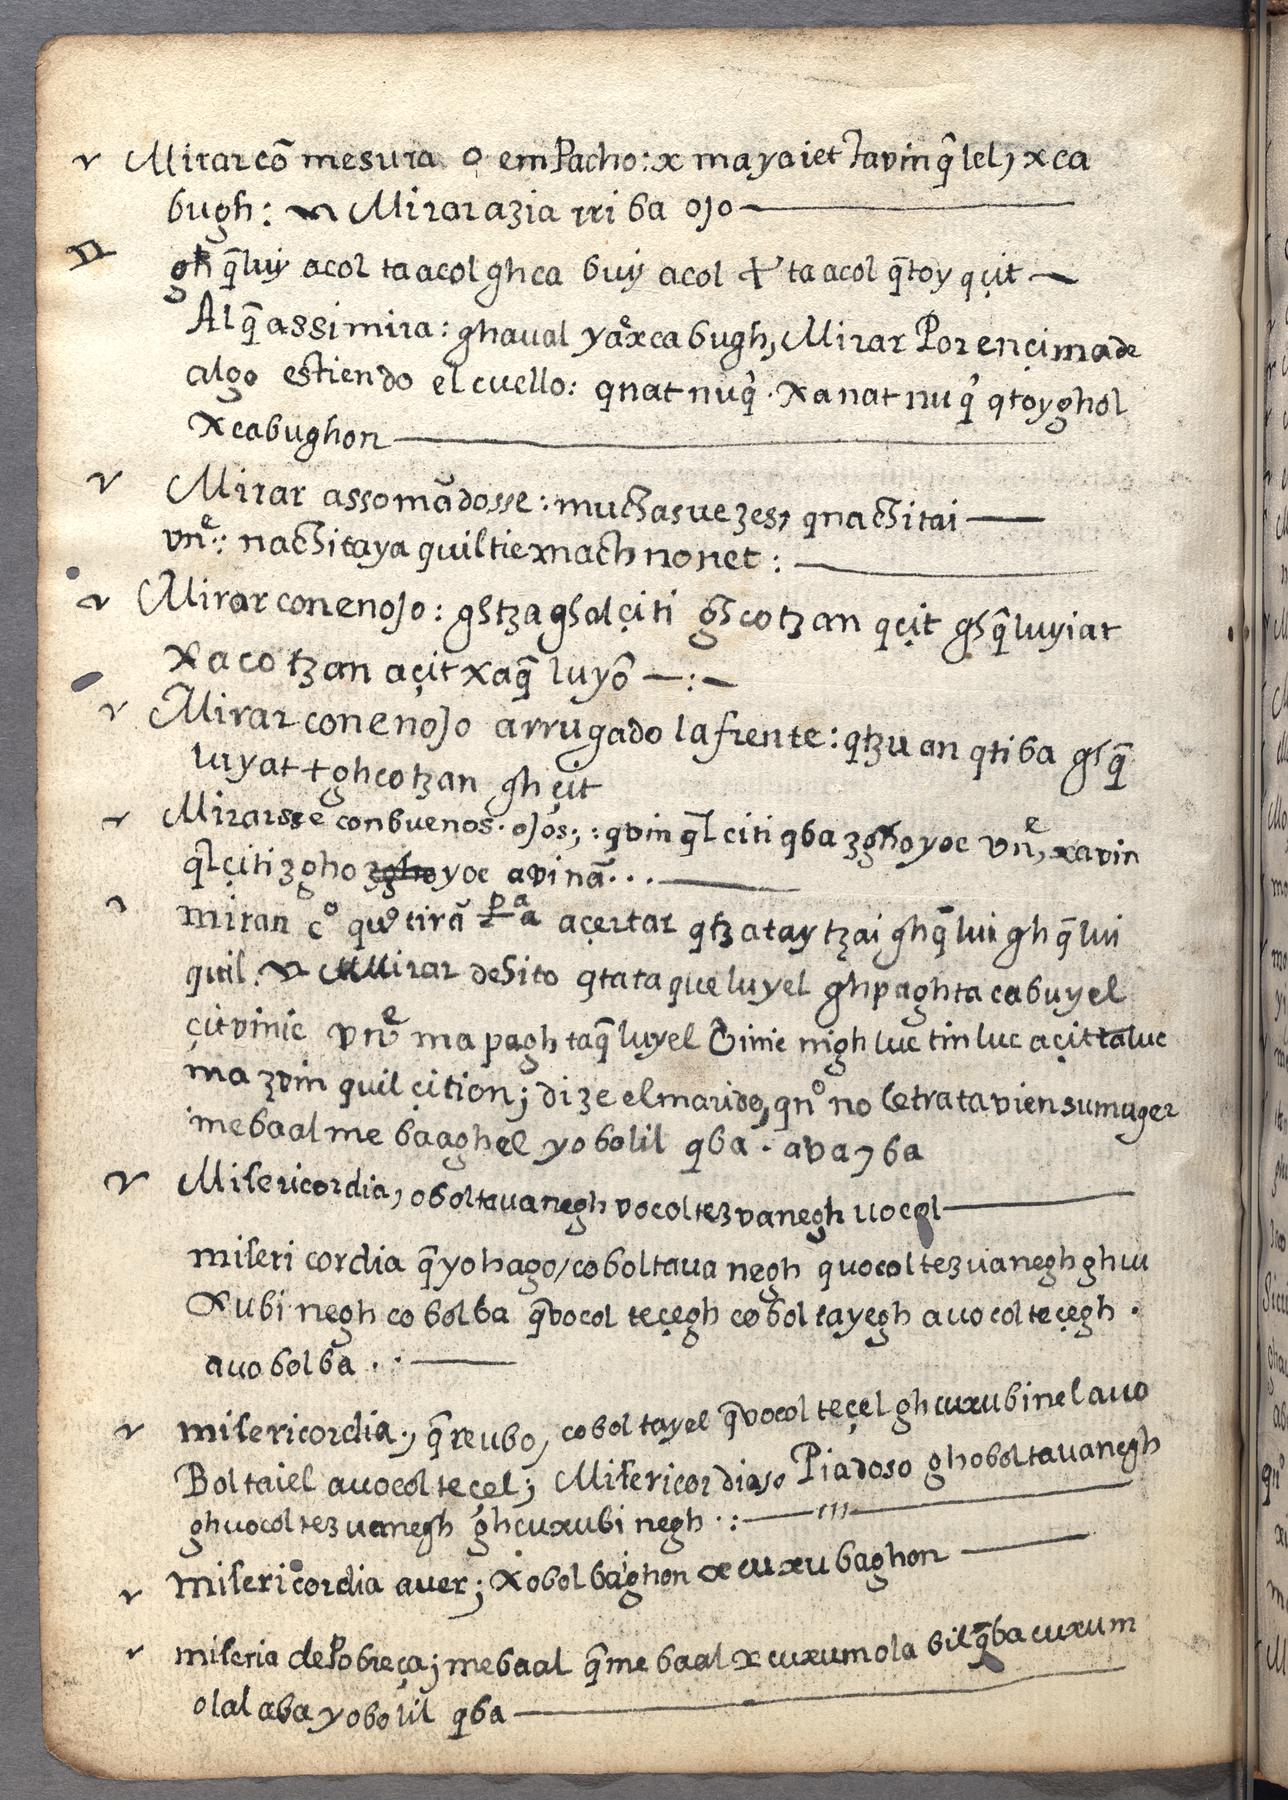 Mirar cō mesura o emPacho: x ma yaiet ta vin q̄ lel, x ca
bugh: Mirar azia rriba ojo
gh q̄luy acol ta acol gh ca buy acol + ta acol q̄toy qçit
Al q̄ assi mira: ghaval yae xca bugh, Mirar Por ençima de
algo estiendo el cuello: qnat nuq̓. xa nat nuq̓ qtoy ghol
x cabughon
Mirar assomādosse: muchas vezes, qnachitai
vne: nachitaya quiltiexnach nonet:
Mirar con enojo: ghtza ghol çiti gh cotzan qçit gh q̄luyiat
x a cotzan açit xa q̄ luyō —:—
Mirar con enojo arrugado la frente: qtzu an qti ba gh q̄
luyat + ghcotzan gh çit
Mirarsse con buenos. ojos;: qvin q̄l citi qba zghoyoc vne, xa vin
q̄l çiti zgho yoc avinā...
miran co quo tirā pa a açertar qtz atay tzai gh q̄ lui gh q̄ lui
quil. Mirar de hito qtata que luyel ghpagh ta cabuyel
çit vinic vne ma pagh ta q̄ luyel Vinic nigh luc tin luc açit taluc
ma zvin quil çition; dize el marido, qno no le trata vien su muger
me baal me baaghel yobolil qba. ava y ba
Misericordia, oboltavanegh vocoltezvanegh uocol
miseri cordia q̄ yo hago/ coboltaua negh quocoltezuanegh ghcu
xubi negh co bolba q̄vocol teçegh cobol tayegh avocolteçegh.
avobolba..
misericordia., q̄ reubo, cobol tayel q̄vocol teçel ghcuxubinel avo
Boltaiel avocolteçel; Misericordioso Piadoso ghoboltavanegh
ghuocoltezuanegh ghcuxubi negh.:
misericordia aver; xobolbaghon x cuxubaghon
miseria dePobreça; mebaal q̄me baal x cuxumola bil q̄ba cuxum
olal aba yobolil qba